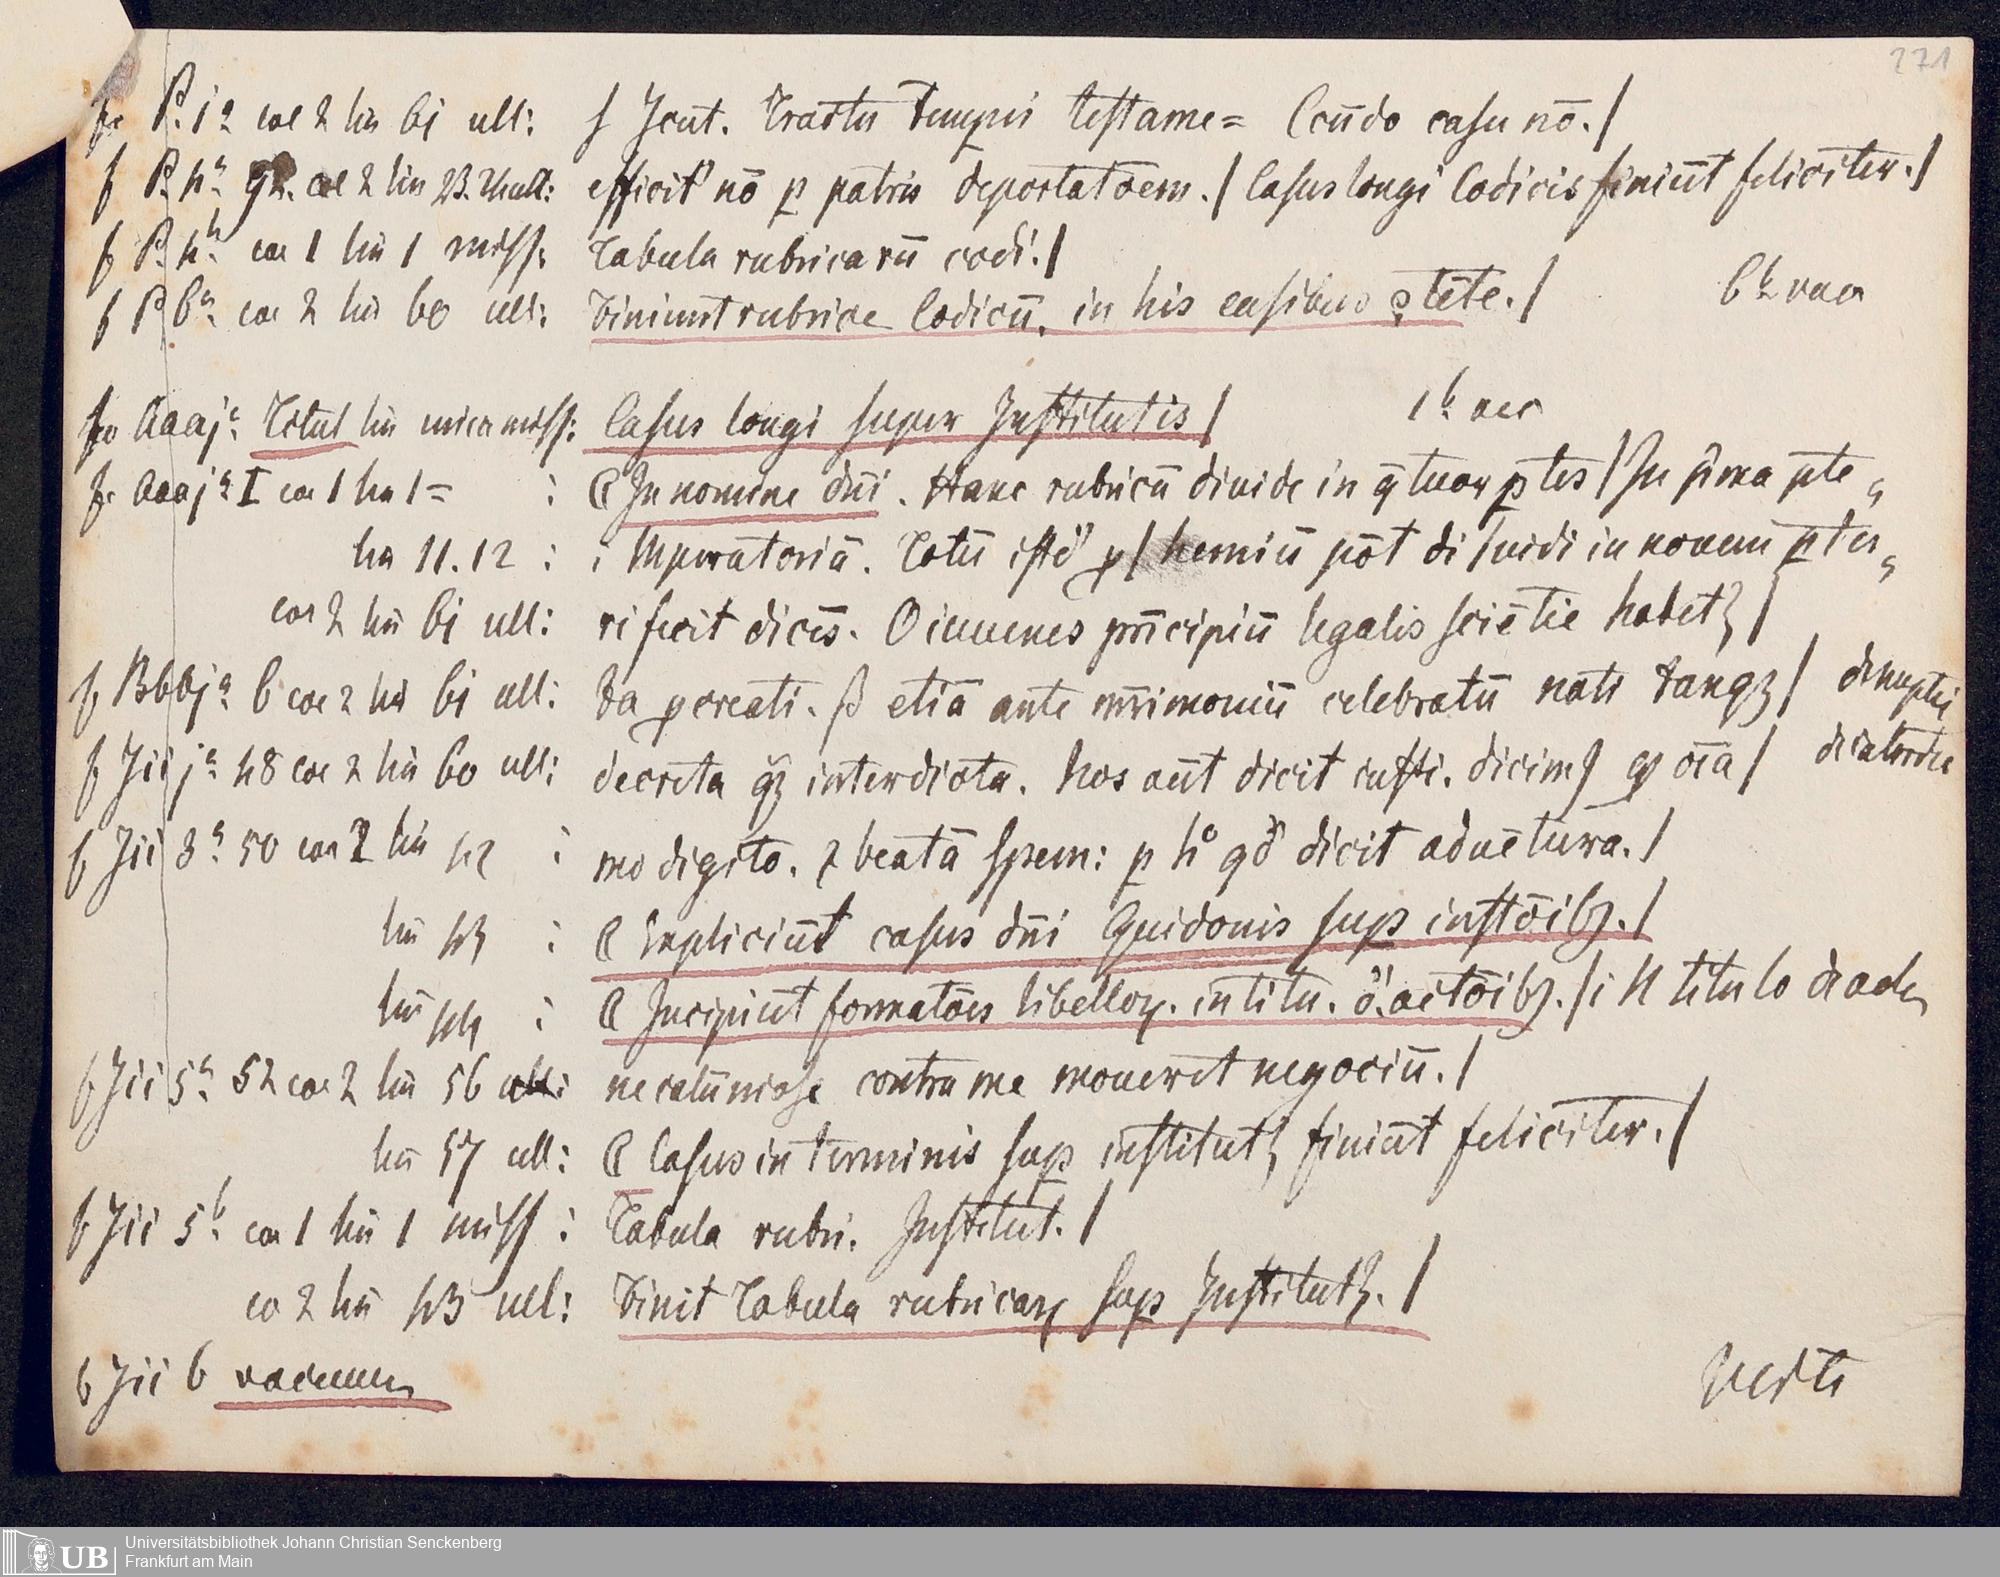 271
f P. j a col 2 lin 61 ult: s Jcut. Tractu tempis testame= Secūdo casu nō. /
f P. 4 a 92. col 2 lin 23. ult: efficit' nō p patris deportatōem. / Casus longi Codicis finiūt feliciter. /
f P. 4 b col 1 lin 1 miss: Tabula rubricarū codi. /
f P 6 a col 2 lin 60 ult: Finiunt rubrice Codicū. in his casibus ꝯtēte. / 6 b vac
fo Aaaj a Titul lin unica miss: Casus longi super Institutis / 1 b vac
f Aaaj a I col 1 lin 1 = : C In nomine dn̄i. Hanc rubricū diuide in q̄tuor ꝑtes / In p̄ma ꝑte
lin 11. 12 : i Mperatoriā. Totū istd' ꝓ / hemiū pōt di / uidi in nouem ꝑtes
col 2 lin 61 ult: ri fecit dicēs. O iuuenes prīcipiū legalis sciētie habetꝫ /
f Bbbj a 6 col 2 lin 61 ult: da ꝓcreati. ß etiā ante mr̄imoniū celebratū nati tangꝫ / de nuptis
f Jii j a 48 col 2 lin 60 ult: decreta qꝫ interdicta. Nos aūt dicit iusti. dicimꝰ ꝙ oīa /
f Jii 3 a 50 col 2 lin 42 : mo digito. ⁊ beatā spem: p h° qd' dicit aduētura. /
lin 43 : C Expliciūt casus dn̄i Guidonis sup instōibꝫ. /
lin 44 : C Incipiūt formatōes libelloꝝ. in titu. d'. actōibꝫ. / i N titulo de actu
f Jii 5 a 52 col 2 lin 56 ult: ne calūniose contra me moueret negociū. /
lin 57 ult: C Casus in terminis sup institutꝫ finiūt feliciter. /
f Jii 5 b col 1 lin 1 miss : Tabula rubri. Institut. /
co 2 lin 43 ult: Finit Tabula rubricaꝝ sup Institutꝫ. /
f Jii 6 vacuum
Verte
Universitätsbibliothek Johann Christian Senckenberg
Frankfurt am Main
UB